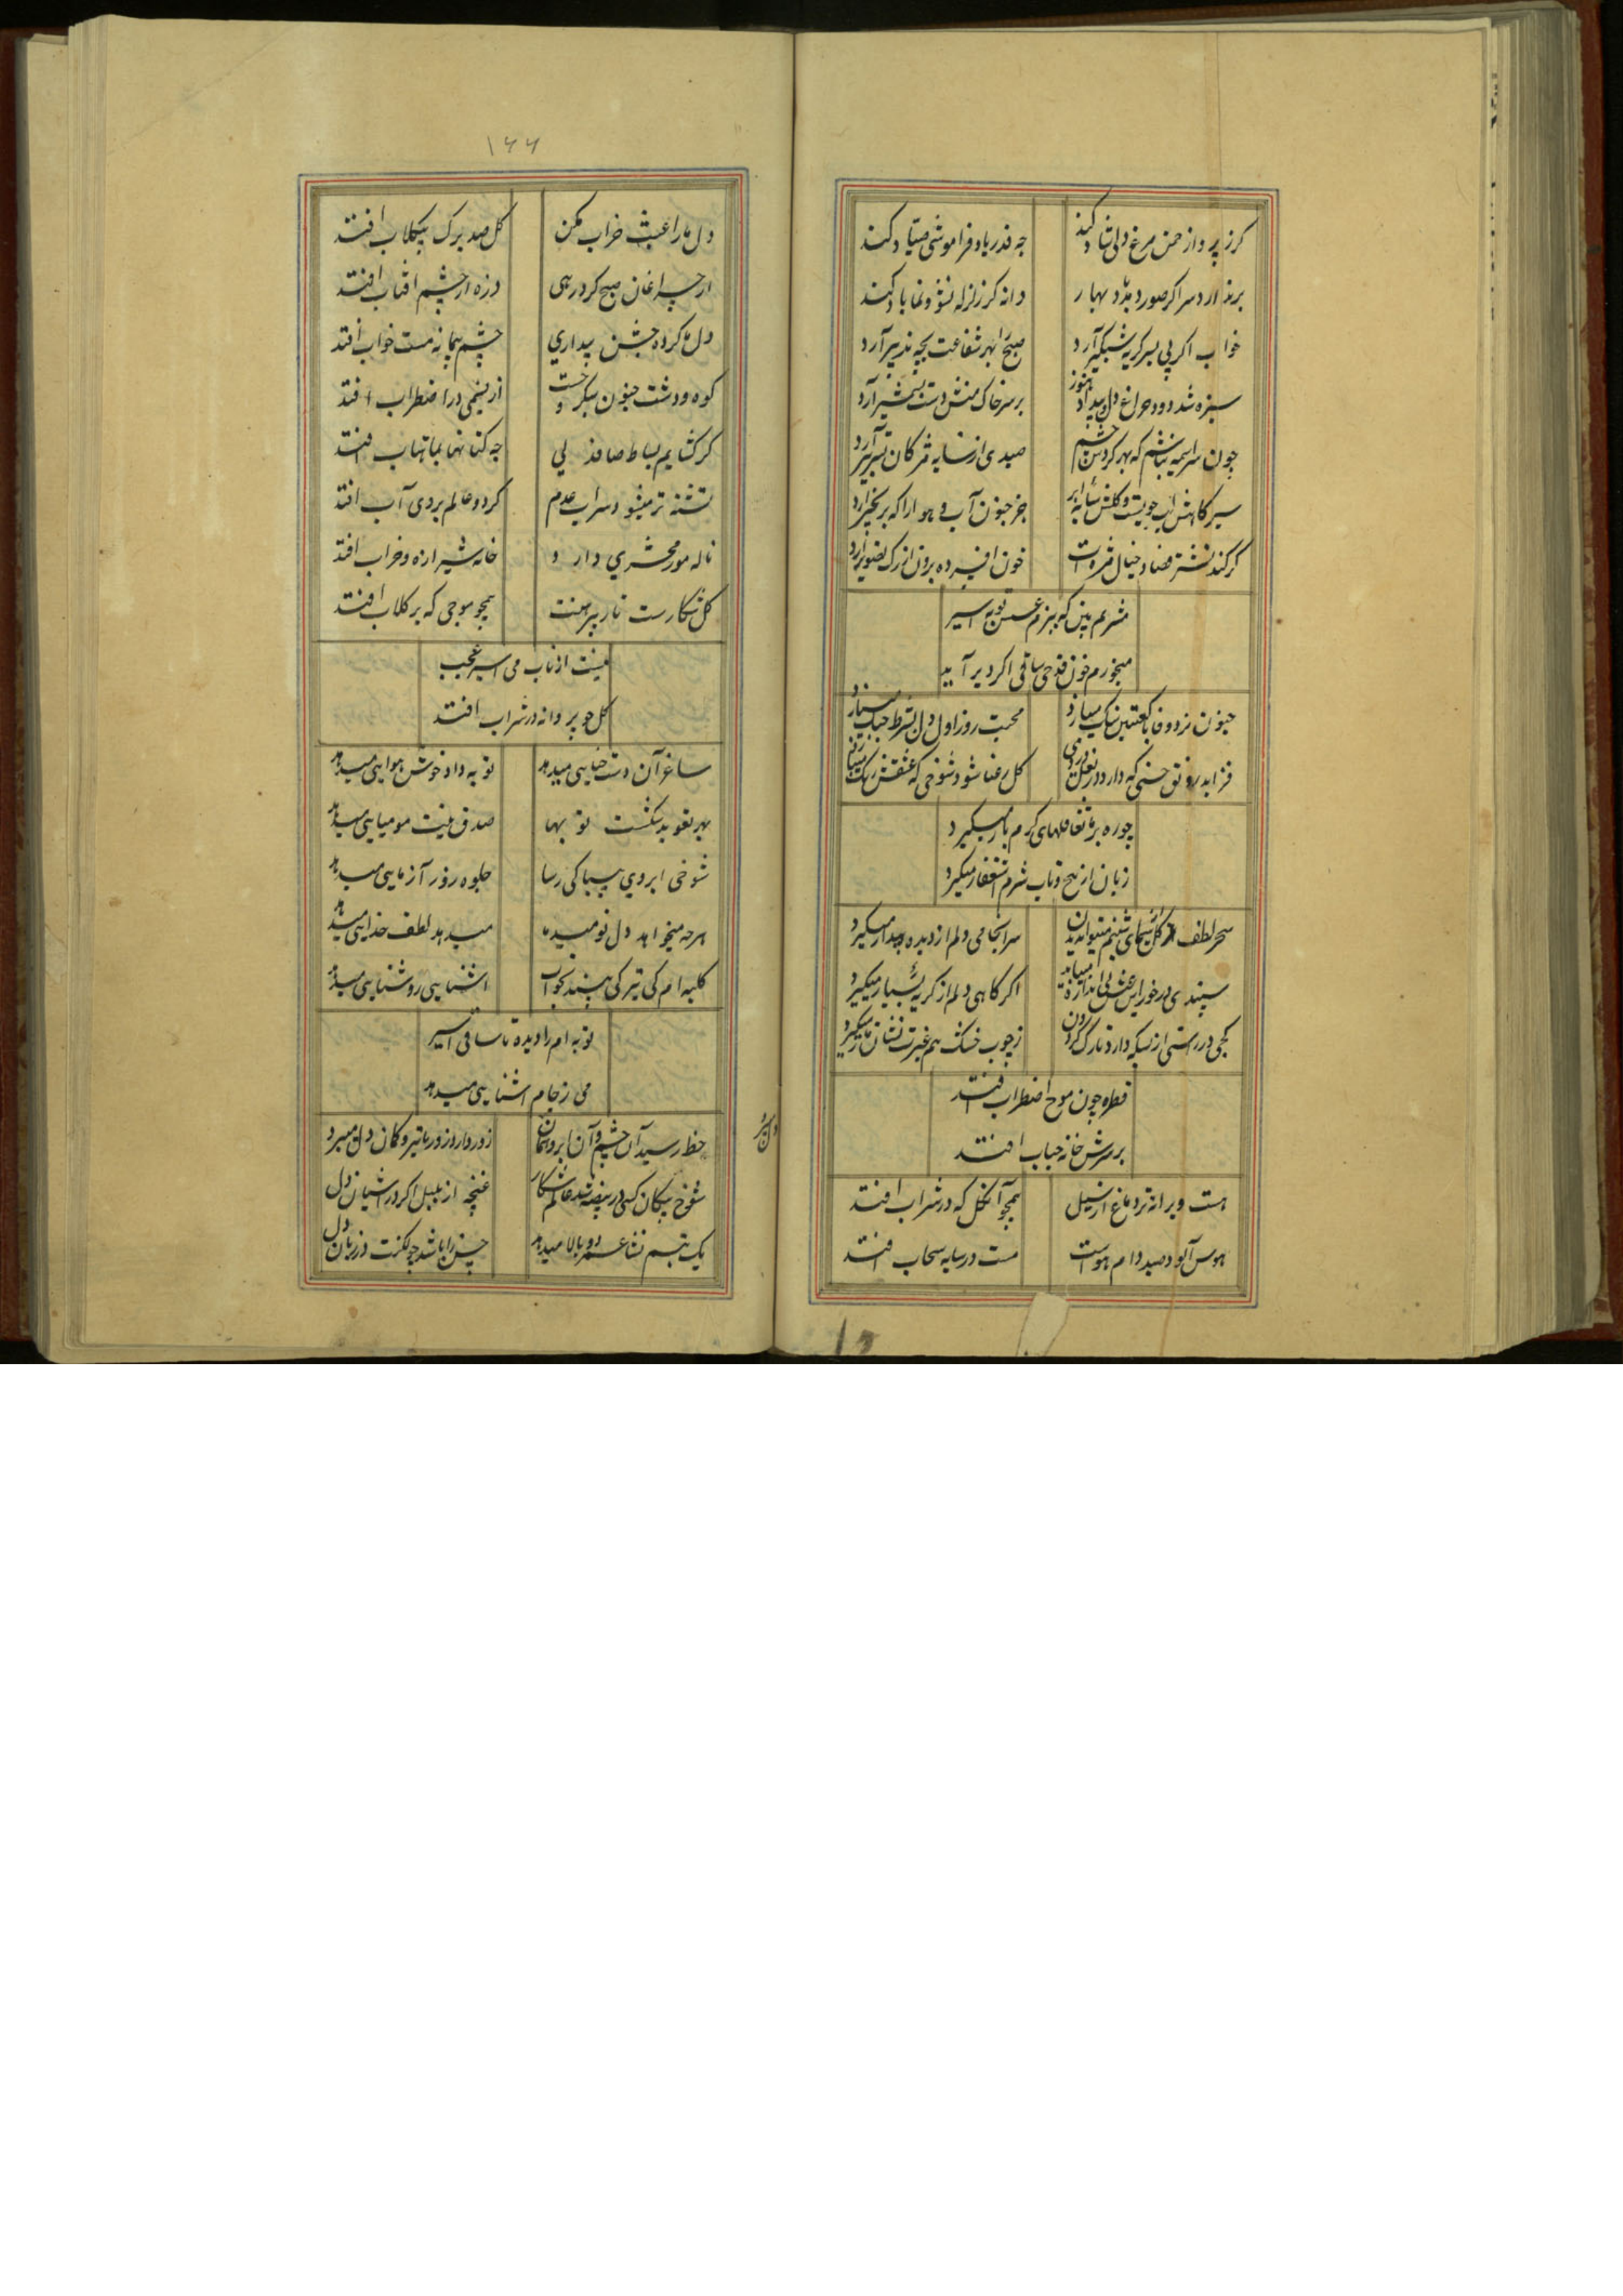 کرز پرواز حمن مرغ دلی شاد کند
چه قدر یاد فراموشی صیاد کند
برندارد سر اکر صور دمد باد بهار
دانه کز زلزله نشو و نما یاد کند
خواب اکر پی بسر کریه شبکیر آرد
صبح را بهر شفاعت بچه تدبیر آرد
سبزه شد دود چراغ دل و بیداد هنوز
بر سر خاک منش دست بشمشیر آرد
چون سراسیمه نباشم که بهر کردش چشم
صیدی از سایه مژکان تیر آرد
جز جنون آب و هوا را که بزنجیر آرد
کر کند نشتر فصاد خیال مژه ات
خون افسرده برون از رک تصویر آرد
مشربم بین که ببزم عسس توبه اسیر
میخورم خون قدحی ساقی اکر دیر آید
جنون نرد وفا با کعبتین سنک میبازد
محبت روز اول دل بشرط جنک میبازد
فزاید رونق حسنی که دارد در بغل دردی
کل رعنا شود شوخی که عشقش رنک میبازد
چو ره بر ما تغافلهای کرم یار میکیرد
زبان از پیچ و تاب شرم استغفار میکیرد
سحر لطف از کل سیمای شبنم میتوان دیدن
سرانجامی دلم از دیده بیدار میکیرد
سپندی در خور این عشق بی اندازه میباید
اکر کاهی دلم از کریه بسیار میکیرد
کجی در راستی از بسکه دارد تارک کردون
ز چوب خشک هم غیرت نشان مار میکیرد
قطره چون موج اضطراب افتد
بر سرش خانه حباب افتد
هست ویرانه تر دماغ از سیل
همچو آن کل که در شراب افتد
هوس آلود صید دام هواست
مست در سایه سحاب افتد
۱۶۶
دل ما را عبث خراب مکن
کل صد برک بیکلاب افتد
از چراغان صبح کرد رهی
ذره از چشم آفتاب افتد
دل ما کرده جشن بیداری
چشم پیمانه مست خواب افتد
کوه و دشت جنون سبکر وحست
از نسیمی در اضطراب افتد
کر کشایم بساط صاف دلی
چه کتانها بماهتاب افتد
تشنه تر میشود سراب عدم
کر دو عالم بروی آب افتد
ناله مور محشری دارد
خانه شیرازه و خراب افتد
کل شکارست تار پیرهنت
همچو موجی که بر کلاب افتد
نیست از تاب می اسیر عجب
کل چو پروانه در شراب افتد
ساغر آن دست حنایی میدهد
توبه داد خوش هوایی میدهد
بهر تعوید شکست توبها
صدق نیت مومیایی میدهد
شوخی ابروی بیباکی رسا
جلوه زور آزمایی میدهد
هرچه میخواهد دل نومید ما
میدهد لطف خدایی میدهد
کلبه ام کی تیرکی بیند بخواب
آشنایی روشنایی میدهد
توبه ام را دیده تا ساقی اسیر
می ز جام آشنایی میدهد
خط رسید آن چشم و آن ابرو همان دل میبرد
زور دارد زور با تیر و کمان دل میبرد
غنچه از بلبل اکر در آشیان دل
یک تبسم نشا عمر دو بالا میدهد